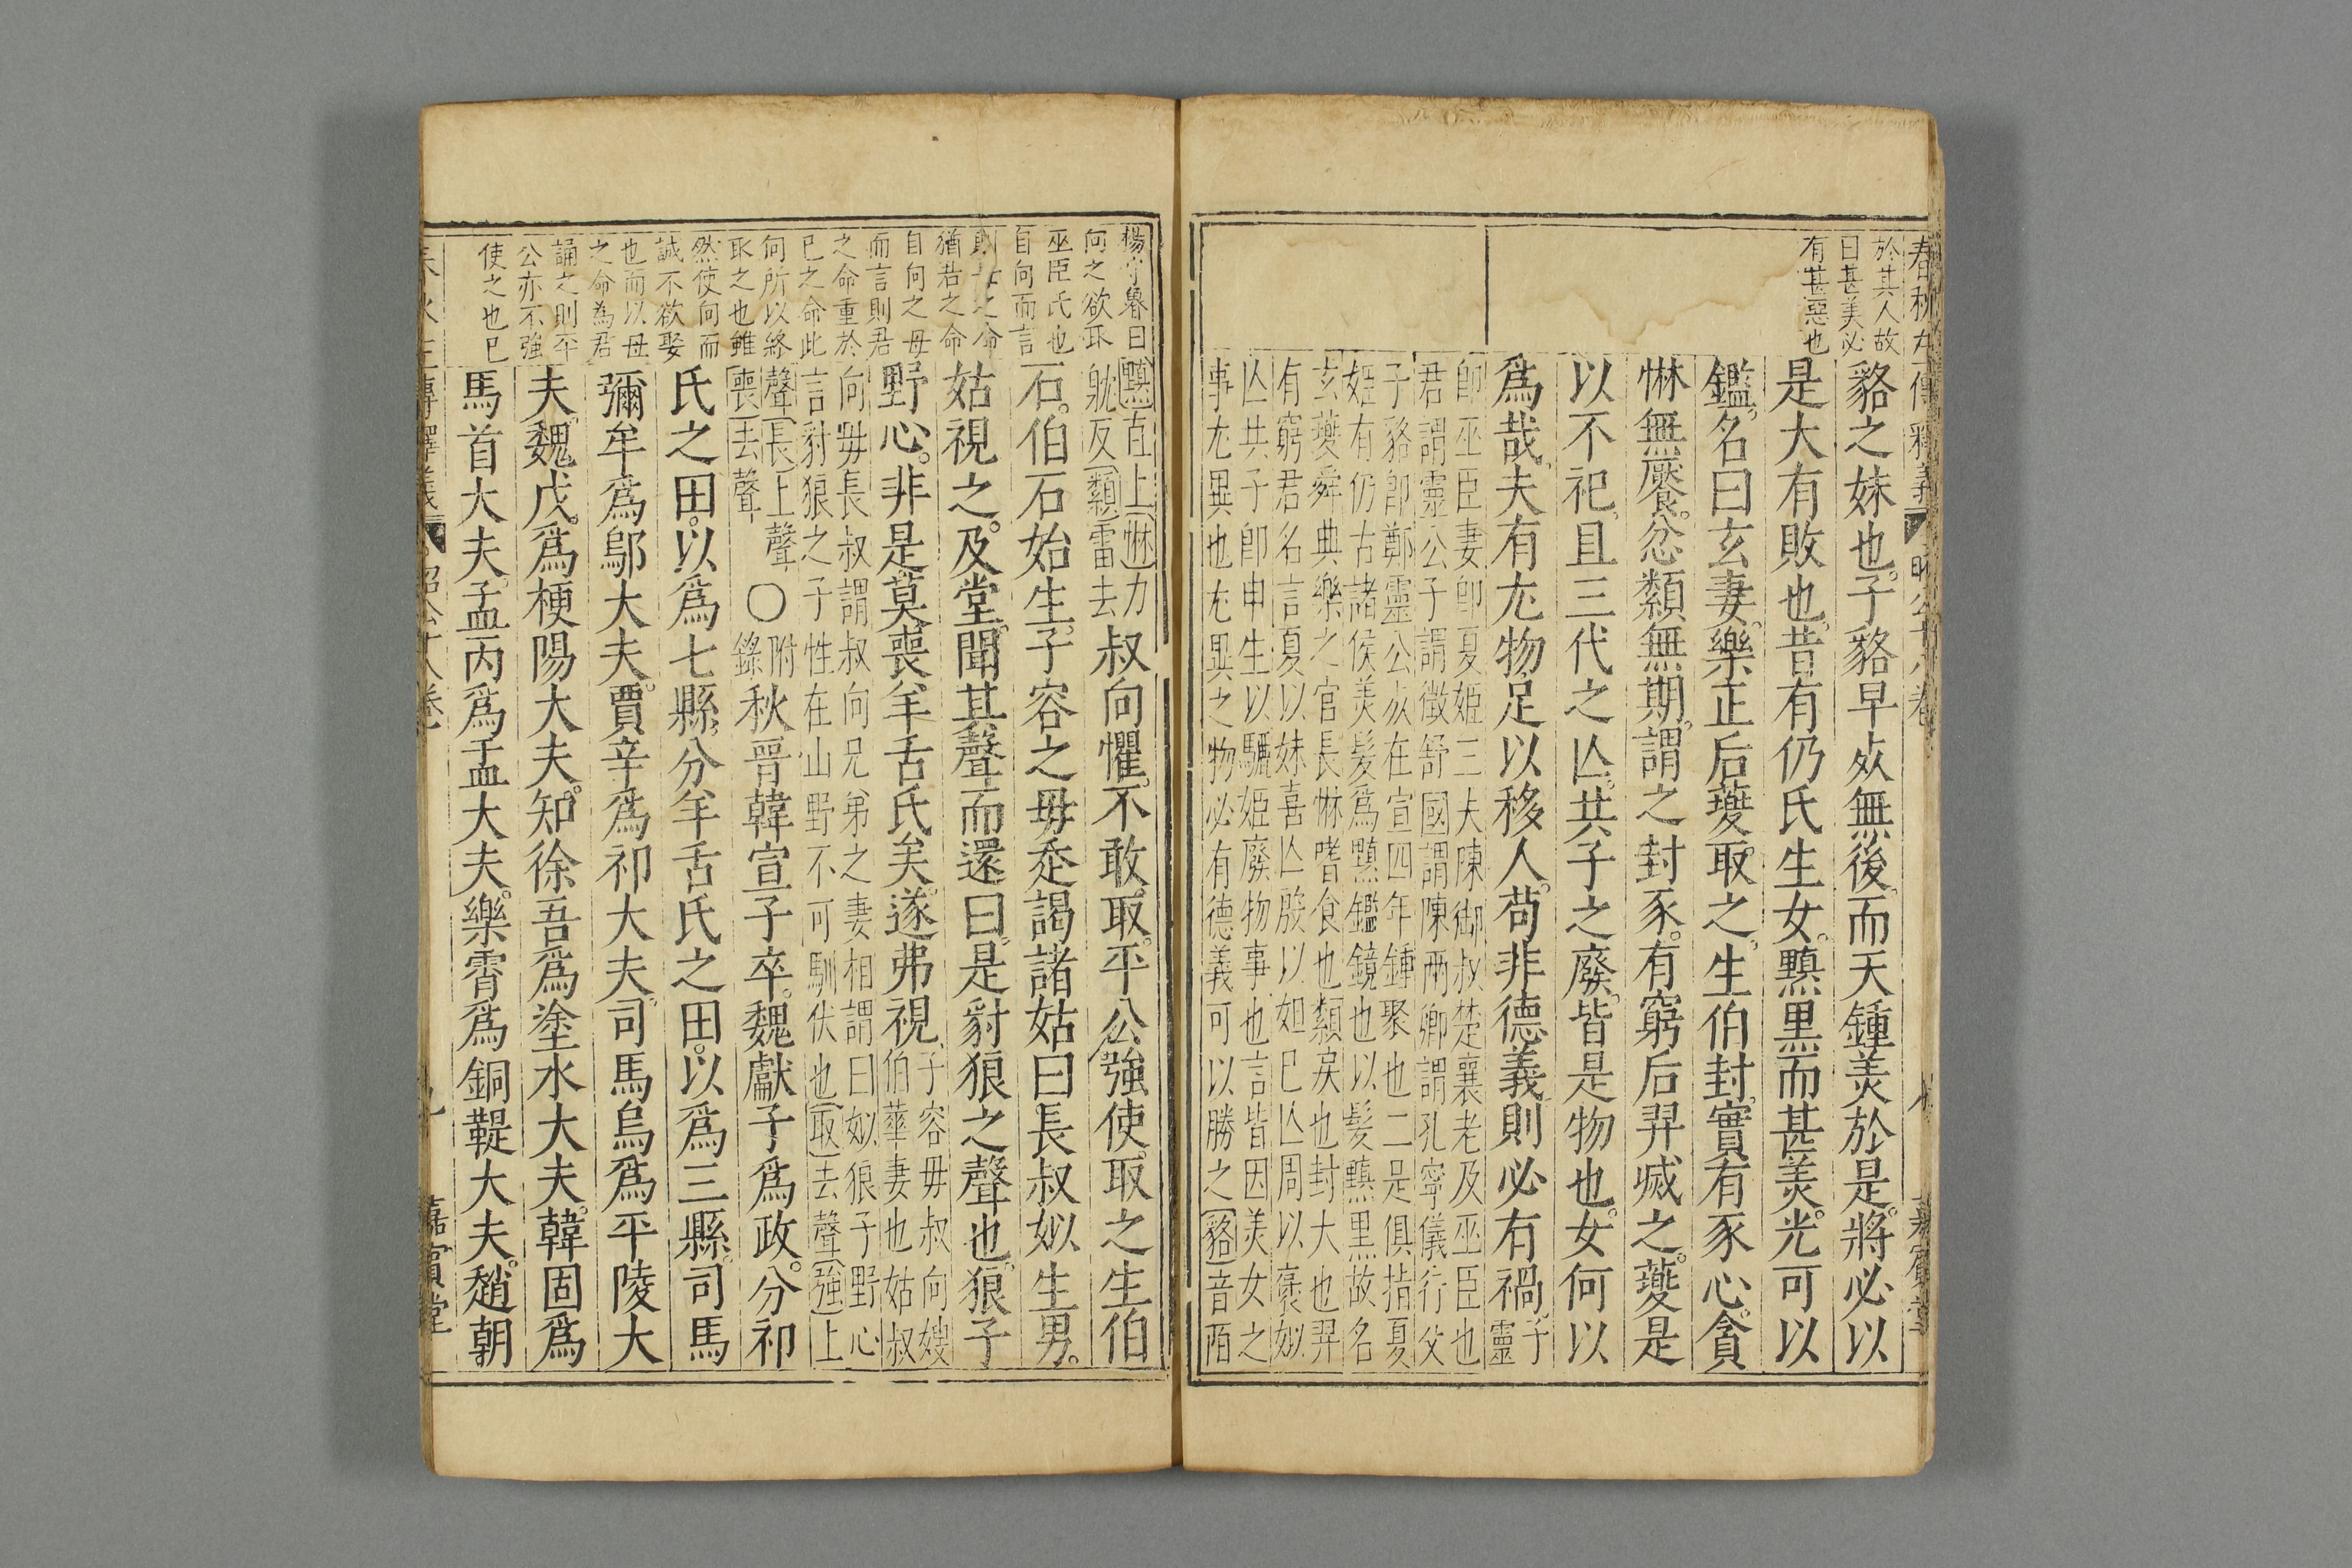 於其人故
曰甚美必
有甚惡也
貉之妹也子貉早死無後而天鍾美於是將必以
是大有敗也昔有仍氏生女黰黑而甚美光可以
鑑名曰玄妻樂正后夔取之生伯封實有豕心貪
惏無饜忿纇無期謂之封豕有窮后羿滅之夔是
以不祀且三代之亾共子之廢皆是物也女何以
爲哉夫有尤物足以移人苟非德義則必有禍子靈
卽巫臣妻卽夏姬三夫陳御叔楚襄老及巫臣也
君謂靈公子謂徵舒國謂陳兩卿謂孔寧儀行父
子貉卽鄭靈公死在宣四年鍾聚也二是俱指夏
姬有仍古諸侯美髮爲黰鑑鏡也以髮黰黒故名
玄夔舜典樂之官長惏嗜食也纇戾也封大也羿
有窮君名言夏以妹喜亾殷以妲己亾周以褒姒
亾共子卽申生以驪姬廢物事也言皆因美女之
事尤異也尤異之物必有德義可以勝之貉音陌
楊守魯曰
向之欲取
巫臣氏也
自向而言
猶君之命
自向之母
而言則君
之命重於
已之命此
向所以終
取之也雖
然使向而
誠不欲娶
也而以母
之命為君
誦之則平
公亦不強
使之也已
黰直上惏力
躭反纇雷去
叔向懼不敢取平公強使取之生伯
石伯石始生子容之毋走謁諸姑曰長叔姒生男
姑視之及堂聞其聲而還曰是豺狼之聲也狼子
野心非是莫喪羊舌氏矣遂弗視
子容毋叔向嫂
伯華妻也姑叔
向毋長叔謂叔向兄弟之妻相謂曰姒狼子野心
言豺狼之子性在山野不可馴伏也取去聲強上
聲長上聲
喪去聲
○
附
錄
秋晉韓宣子卒魏獻子爲政分祁
氏之田以爲七縣分羊舌氏之田以爲三縣司馬
彌牟爲鄔大夫賈辛爲祁大夫司馬烏爲平陵大
夫魏戊爲梗陽大夫知徐吾爲塗水大夫韓固爲
馬首大夫孟丙爲孟大夫樂霄爲銅鞮大夫趙朝